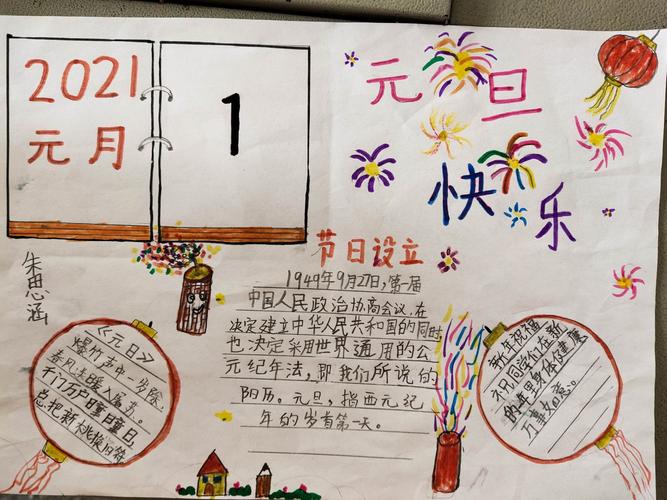 2021
元月
1
元旦
快乐
节日设立
1949年9月27日,第一届
中国人民政治协商会议,在
决定建立中华人民共和国的同时
也决定采用世界通用的公
元纪年法,即我们所说的
阳历。元旦,指西元纪
年的岁首第一天。
朱思涵
《元日》
爆竹声中一岁除,
春风送暖入屠苏。
千门万户曈曈日,
总把新桃换旧符
新年祝福
祝同学们在新
的一年里身体健康
万事如意。